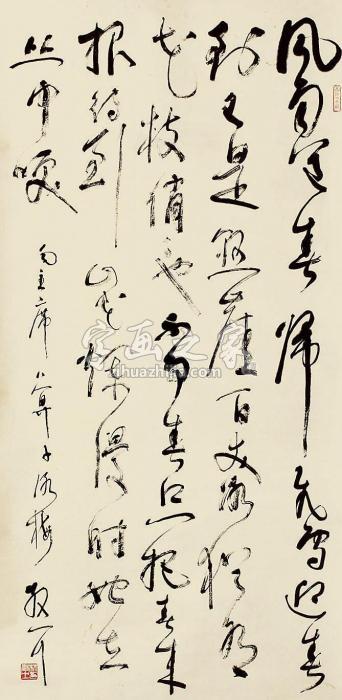 風雨送春歸飛雪迎春
到已是懸崖百丈冰猶有
花枝俏也不爭春只把春來
报待到山花烂漫時她在
丛中笑
毛主席卜算子咏梅 散耳
字画之家
zihuazhijia.com